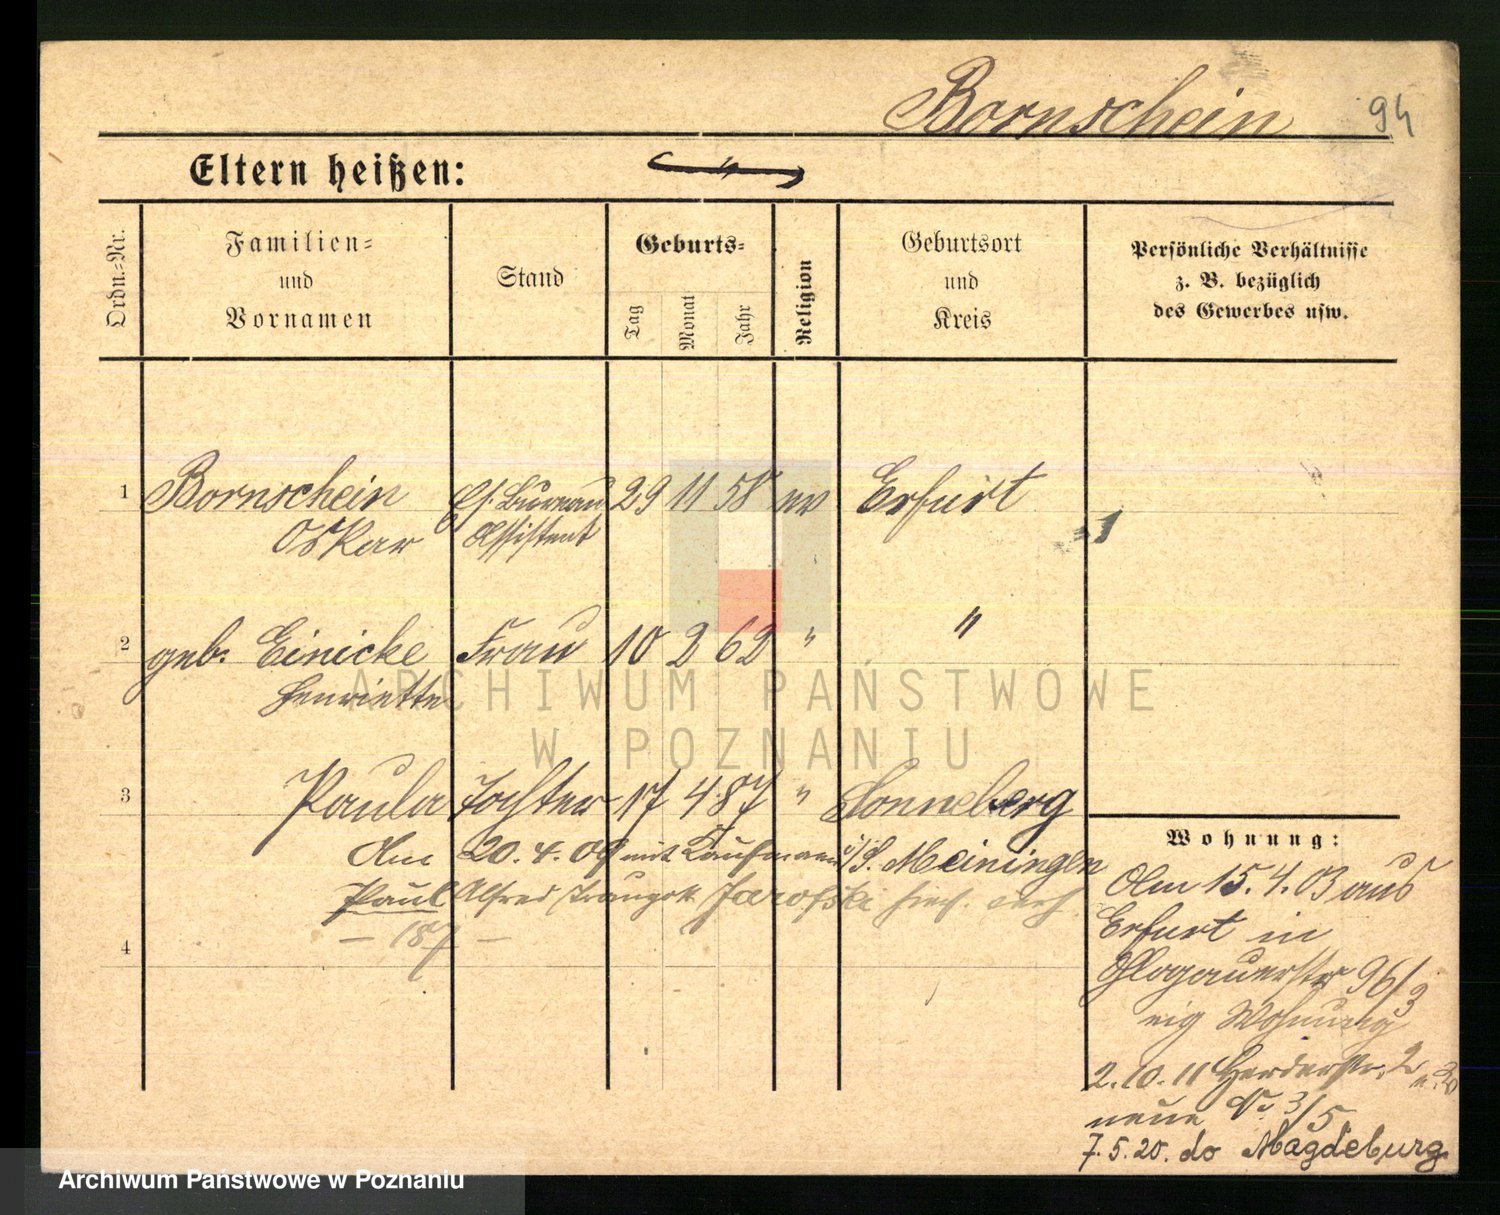 Bornschein 94
Eltern heißen: "
Ordn.=Nr.
Familien=
und
Vornamen
Stand
Geburts=
Tag
Monat
Jahr
Religion
Geburtsort
und
Kreis
Persönliche Verhältnisse
z. B. bezüglich
des Gewerbes usw.
1 Bornschein Es. Bureau 29 11 58 ev Erfurt
Oskar Assistent
2 geb. Einicke Frau 10 2 62 " "
Henriette
3 Paula Tochter 17 4 87 " Sonneberg
Am 20. 4. 09 mit Kaufmann S. Meiningen
Paul Alfred Traugott
– 187 –
4
Wohnung:
Am 15. 4. 03 aus
Erfurt in
Glogauerstr 96/3
eig Wohnung
2. 10. 11 Herderstr. 2
neue No 3/5
7. 5. 20. do Magdeburg
ARCHIWUM PAŃSTWOWE
W POZNANIU
Archiwum Państwowe w Poznaniu